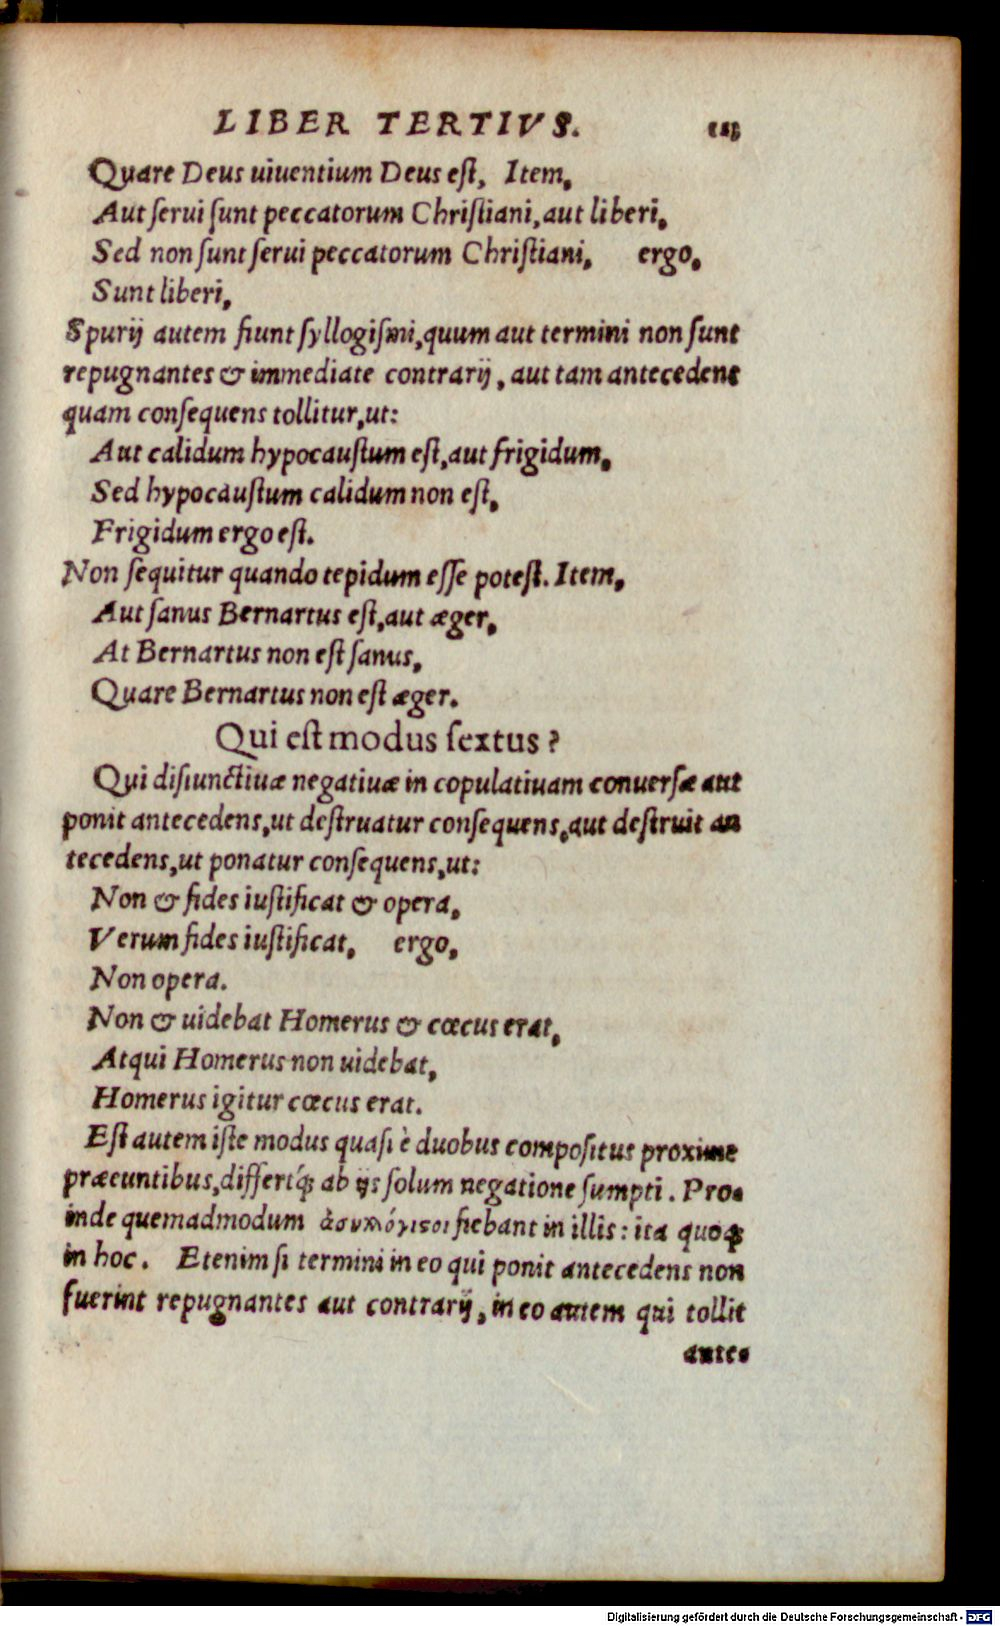 LIBER TERTIVS.
Quare Deus uiuentium Deus eſt, Item,
Aut ſerui ſunt peccatorum Chriſtiani, aut liberi,
Sed non ſunt ſerui peccatorum Chriſtiani, ergo,
Sunt liberi,
Spurij autem fiunt ſyllogiſmi, quum aut termini non ſunt
repugnantes & immediate contrarij, aut tam antecedens
quam conſequens tollitur, ut:
Aut calidum hypocauſtum eſt, aut frigidum,
Sed hypocauſtum calidum non eſt,
Frigidum ergo eſt.
Non ſequitur quando tepidum eſſe poteſt. Item,
Aut ſanus Bernartus eſt, aut æger,
At Bernartus non eſt ſanus,
Quare Bernartus non eſt æger.
Qui eſt modus ſextus?
Qui diſiunctiuæ negatiuæ in copulatiuam conuerſæ aut
ponit antecedens, ut deſtruatur conſequens, aut deſtruit an
tecedens, ut ponatur conſequens, ut:
Non & fides iuſtificat & opera,
Verum fides iuſtificat, ergo,
Non opera.
Non & uidebat Homerus & cœcus erat,
Atqui Homerus non uidebat,
Homerus igitur cœcus erat.
Eſt autem iſte modus quaſi è duobus compoſitus proxime
præeuntibus, differtq́ꝫ ab ijs ſolum negatione ſumpti. Pro-
inde quemadmodum fiebant in illis: ita quoqꝫ
in hoc. Etenim ſi termini in eo qui ponit antecedens non
fuerint repugnantes aut contrarij, in eo autem qui tollit
ante-
Digitalisierung gefördert durch die Deutsche Forschungsgemeinschaft - DFG